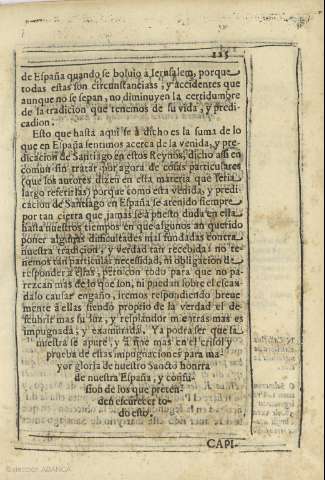 115
de España quando se boluio a Ierusalem, porque
todas estas son circunstanciass, y accidentes que
aunque no se sepan, no diminuyen la certidumbre
de la tradicion que tenemos de su vida, y predi-
cadion.
Esto que hasta aqui se à dicho es la suma de lo
que en España sentimos acerca de la venida, y pre-
dicacion de Santiago en estos Reynos, dicho assi en
comun sin tratar por agora de cosas particulares
(que los autores dizen en esta materia que seria
largo referirlas) porque como esta venida, y predi-
cacion de Santiago en España se à tenido siempre
por tan cierta que jamas se à puesto duda en ella
hasta nuestros tiempos en que algunos an querido
poner algunas dificultades mal fundadas contra
nuestra tradicion, y verdad tan recebida: no te-
nemos tan particular necessidad, ni obligacion de
responder a essas, pero con todo para que no pa-
rezcan mas de lo que son, ni puedan sobre el escan-
dalo causar engaño, iremos respondiendo breue
mente a ellas siendo propio de la verdad el de
scubrir mas su luz, y resplandor mientras mas es
impugnada, y examinada. Ya podra ser que la
nuestra se apure, y afine mas en el crisol y
prueba de estas impugnaciones para ma-
yor gloria de nuestro Sancto honrra
de nuestra España, y confu-
sion de los que preten-
den escurecer to-
do esto.
CAPI-
Colección ABANCA